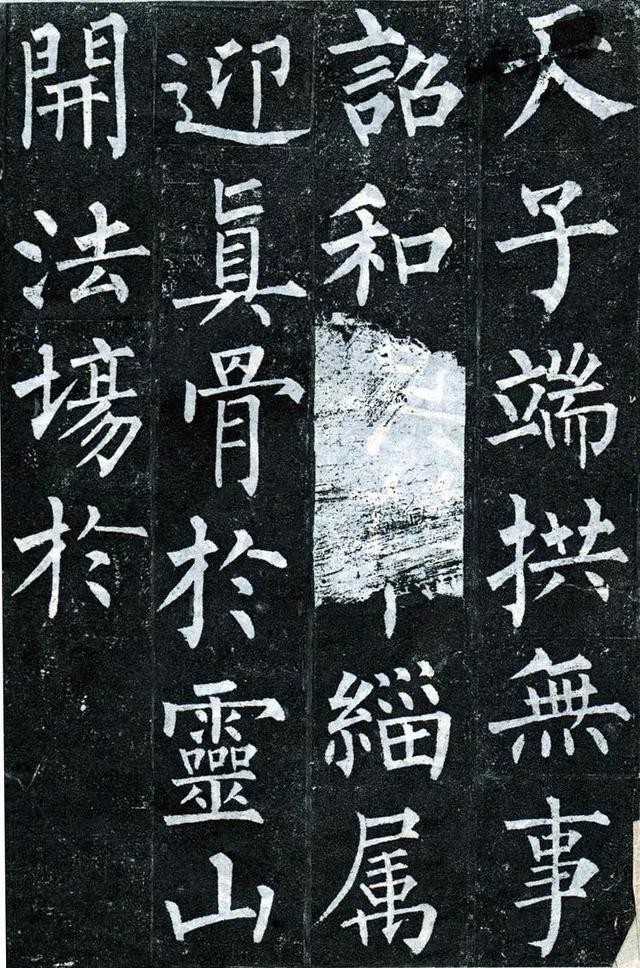 天子端拱無事
詔和緇属
迎眞骨於靈山
開法塲於